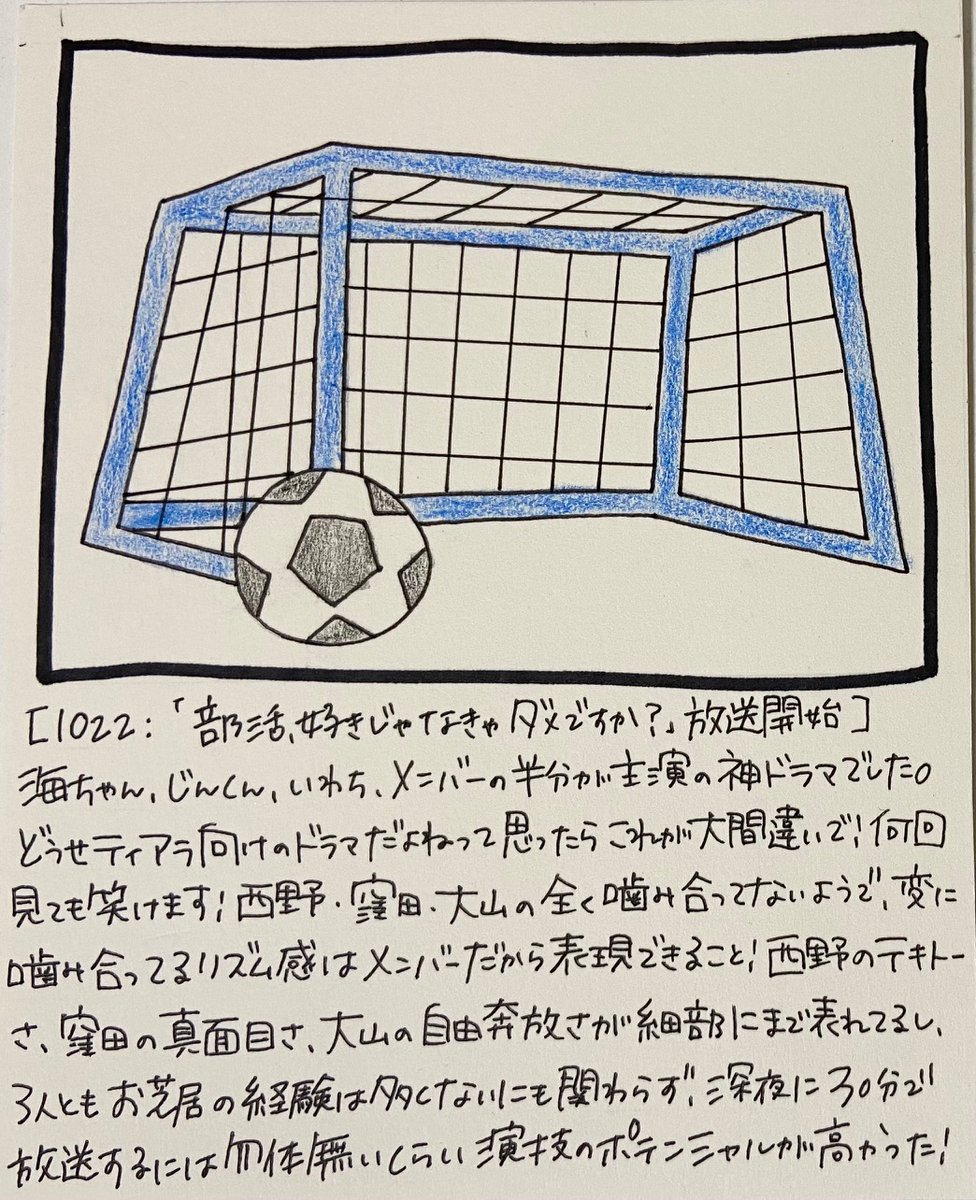 [1022:「部活、好きじゃなきゃダメですか?」放送開始]
海ちゃん、じんくん、いわち、メンバーの半分が主演の神ドラマでした。
どうせティアラ向けのドラマだよねって思ったらこれが大間違いで!何回
見ても笑けます!西野・窪田・大山の全く噛み合ってないようで、変に
噛み合ってるリズム感はメンバーだから表現できること!西野のテキトー
さ、窪田の真面目さ、大山の自由奔放さが細部にまで表れてるし、
3人ともお芝居の経験は多くないにも関わらず、深夜に30分で
放送するには勿体無いくらい演技のポテンシャルが高かった!